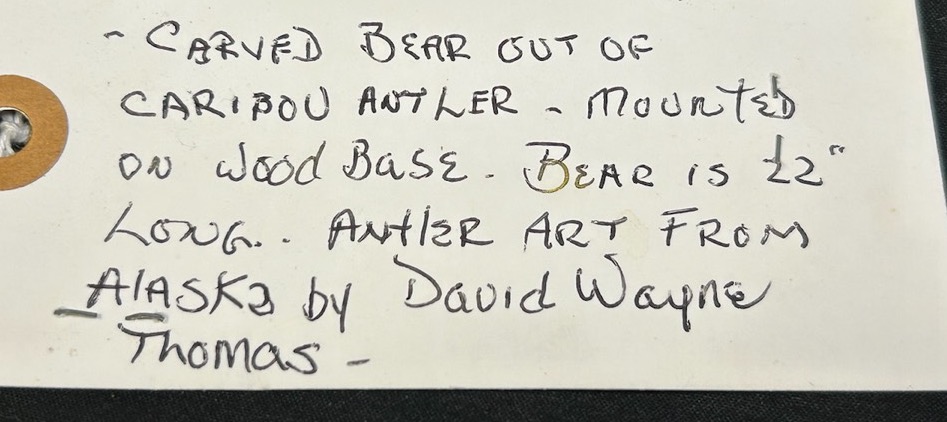 - CARVED BEAR OUT OF
CARIBOU ANTLER - MOUNTED
ON WOOD BASE. BEAR IS 22"
LONG.. ANTLER ART FROM
ALASKA by David Wayne
Thomas -